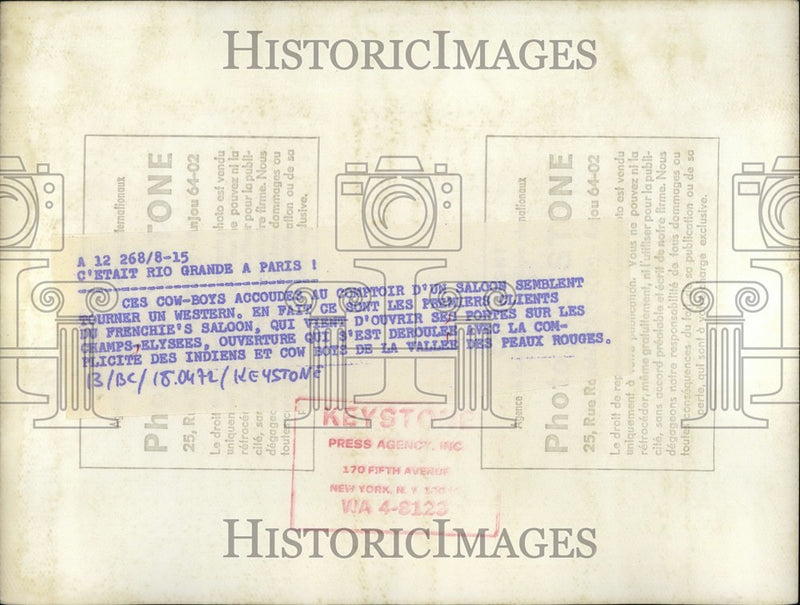 HISTORICIMAGES
A 12 268/8-15
C'ETAIT RIO GRANDE A PARIS !
CES COW-BOYS ACCOUDES AU COMPTOIR D'UN SALOON SEMBLENT
TOURNER UN WESTERN. EN FAIT CE SONT LES PREMIERS CLIENTS
DU FRENCHIE'S SALOON, QUI VIENT D'OUVRIR SES PORTES SUR LES
CHAMPS-ELYSEES, OUVERTURE QUI S'EST DEROULEE AVEC LA COM-
PLICITE DES INDIENS ET COW BOYS DE LA VALLEE DES PEAUX ROUGES.
B/BC/18.0472/KEYSTONE
KEYSTONE
PRESS AGENCY, INC.
170 FIFTH AVENUE
NEW YORK, N. Y.
WA 4-8123
ernationaux
TONE
njou 64-02
hoto est vendu
e pouvez ni la
r pour la publi-
firme. Nous
dommages ou
ation ou de sa
lusive.
Pho
25, Ru
Le droit
uniquen
cité, san
dégageo
toutes
Agence
Phot
ONE
25, Rue R
64-02
Le droit de rep
oto est vendu
uniquement à
publication. Vous ne pouvez ni la
rétrocéder, même gratuitement, ni l'utiliser pour la publi-
cité, sans accord préalable et écrit de notre firme. Nous
dégageons notre responsabilité de tous dommages ou
toutes conséquences du fait de sa publication ou de sa
charge exclusive.
HISTORICIMAGES